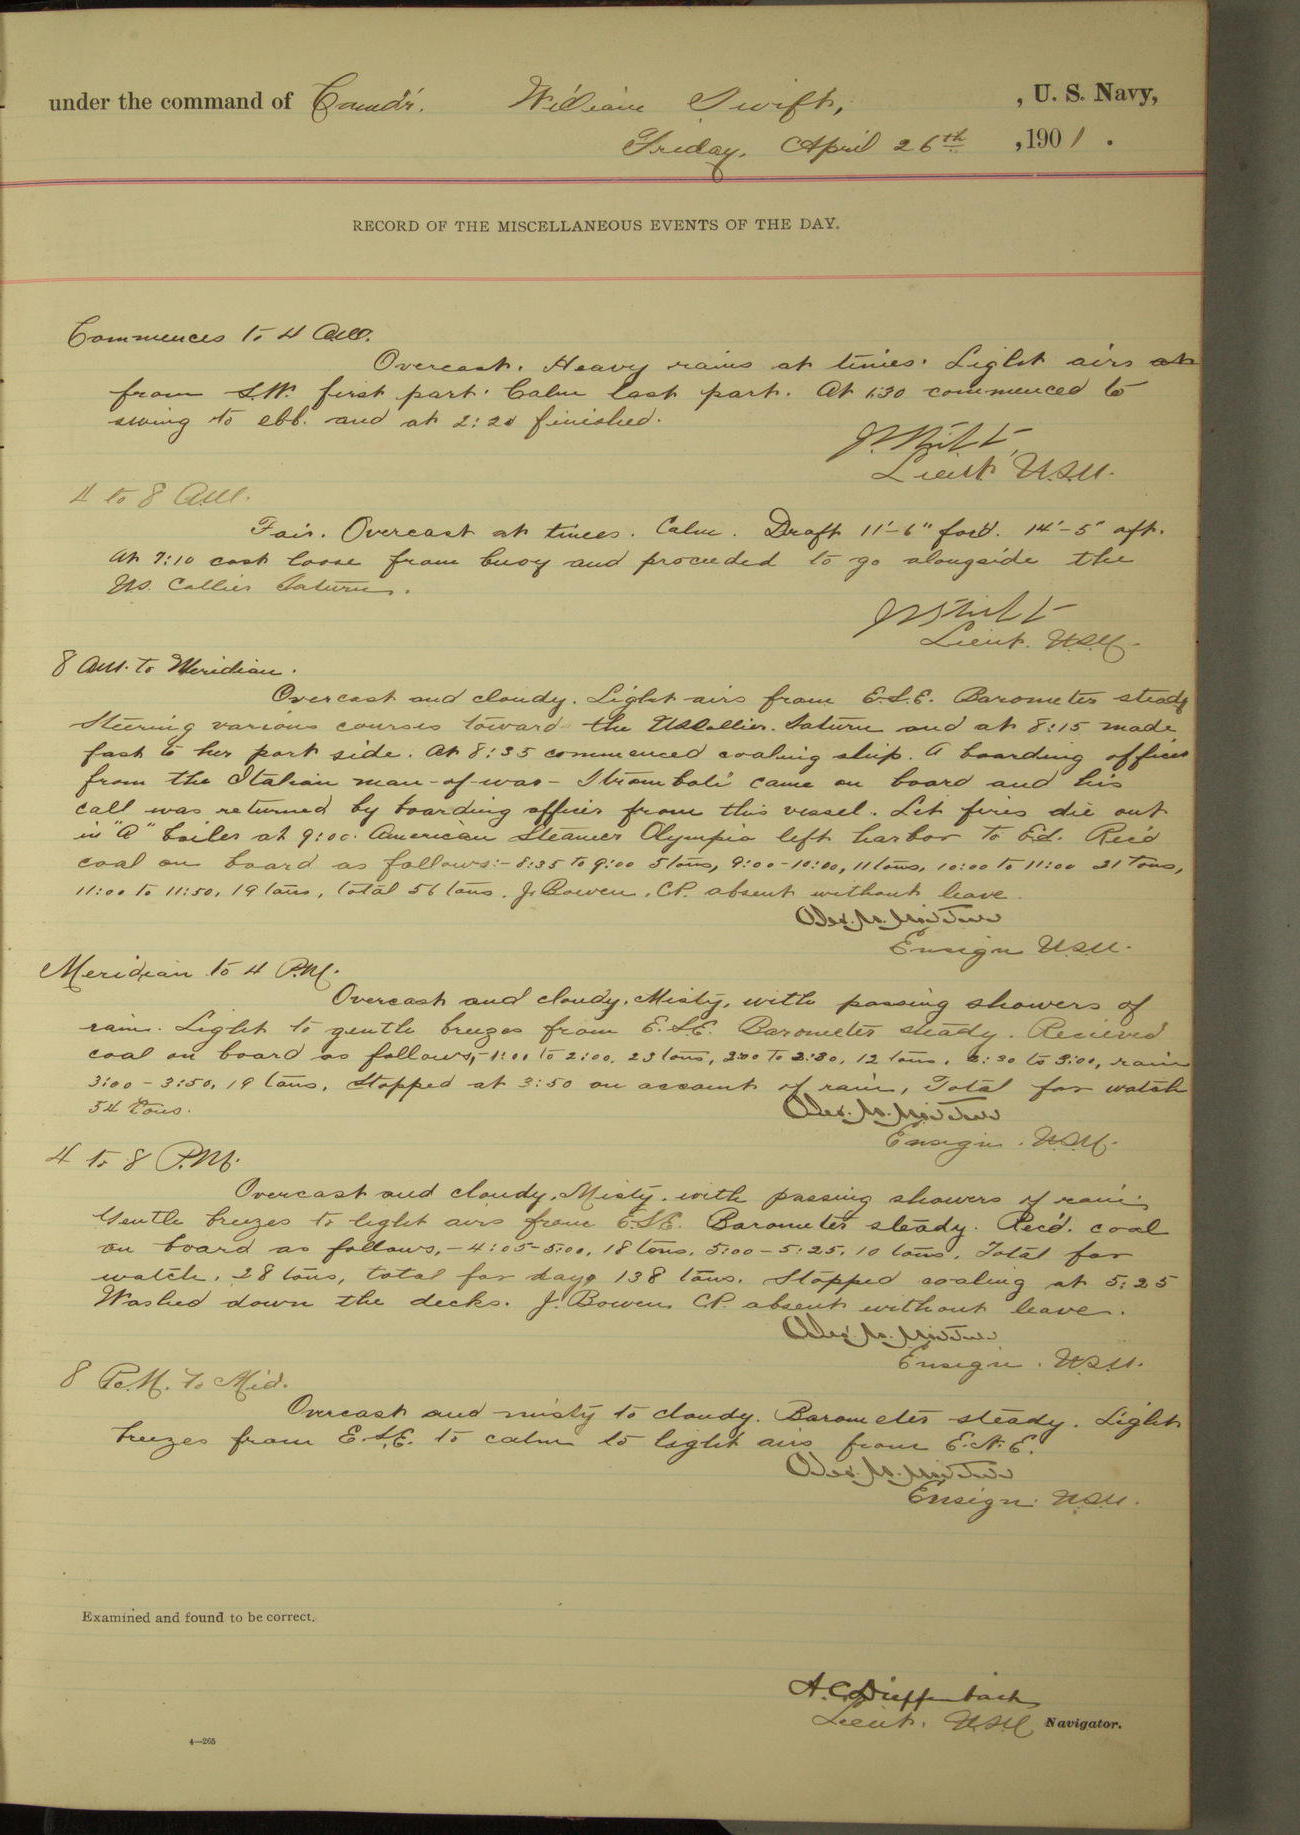 under the command of Comd'r. William Swift, , U. S. Navy,
Friday, April 26th , 1901.
RECORD OF THE MISCELLANEOUS EVENTS OF THE DAY.
Commences to 4 A.M.
Overcast. Heavy rains at times. Light airs
from S.W. first part. Calm last part. At 1:30 commenced to
swing to ebb. and at 2:20 finished.
Lieut. U.S.N.
4 to 8 A.M.
Fair. Overcast at times. Calm. Draft 11'-6" for'd. 14'-5" aft.
At 7:10 cast loose from buoy and proceeded to go alongside the
U.S. Collier Saturn.
Lieut. U.S.N.
8 A.M. to Meridian.
Overcast and cloudy. Light airs from E.S.E. Barometer steady
Steering various courses toward the U.S. Collier. Saturn and at 8:15 made
fast to her port side. At 8:35 commenced coaling ship. A boarding officer
from the Italian man-of-war- Stromboli came on board and his
call was returned by boarding officer from this vessel. Let fires die out
in "A" boiler at 9:00. American Steamer Olympia left harbor to E'd. Rec'd
coal on board as follows:- 8:35 to 9:00 5 tons, 9:00-10:00, 11 tons, 10:00 to 11:00 21 tons,
11:00 to 11:50, 19 tons, total 56 tons. J. Bowen, C.P. absent without leave.
Ensign U.S.N.
Meridian to 4 P.M.
Overcast and cloudy, Misty, with passing showers of
rain. Light to gentle breezes from E.S.E. Barometer steady. Recieved
coal on board as follows,- 1:00 to 2:00, 23 tons, 2:00 to 2:30, 12 tons. 2:30 to 3:00, rain
3:00 - 3:50, 19 tons. Stopped at 3:50 on account of rain, Total for watch
54 tons.
Ensign. U.S.N.
4 to 8 P.M.
Overcast and cloudy, Misty, with passing showers of rain.
Gentle breezes to light airs from E.S.E. Barometer steady. Rec'd. coal
on board as follows,- 4:05-5:00, 18 tons. 5:00 - 5:25, 10 tons. Total for
watch. 28 tons, total for day, 138 tons. Stopped coaling at 5:25
Washed down the decks. J. Bowen C.P. absent without leave.
Ensign. U.S.N.
8 P.M. to Mid.
Overcast and misty to cloudy. Barometer steady. Light
breezes from E.S.E. to calm to light airs from E.N.E.
Ensign. U.S.N.
Examined and found to be correct.
A. C. Dieffenbach
Lieut. U.S.N. Navigator.
4—265